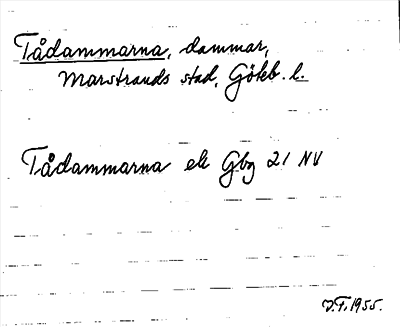 Tådammarna, dammar,
Marstrands stad, Göteb. l.
Tådammarna ek Gbg 21 NV
J.F. 1955.